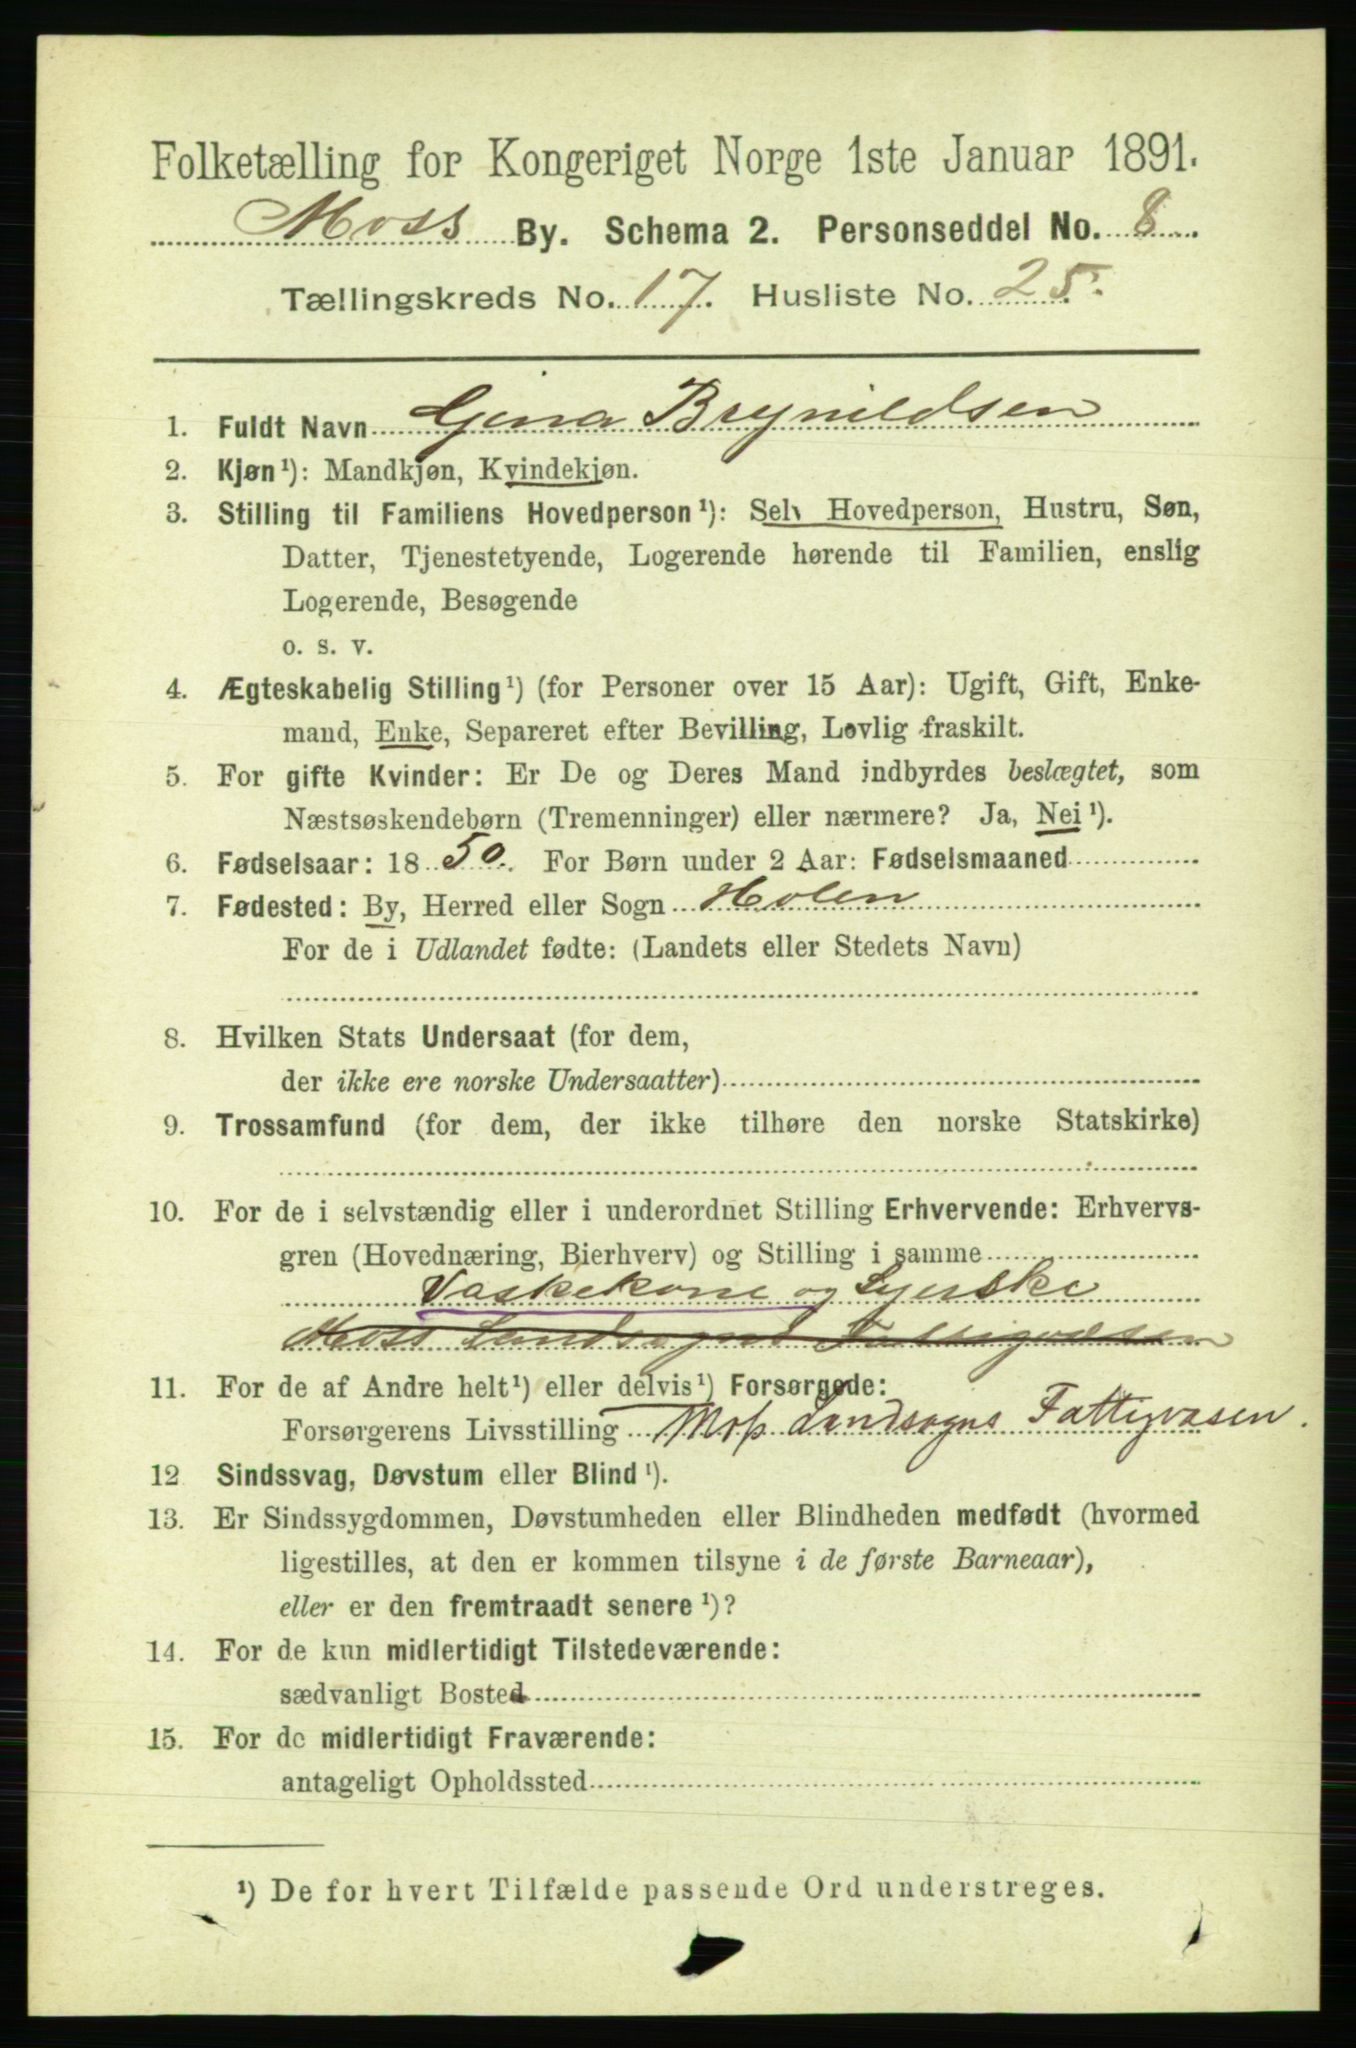 Folketælling for Kongeriget Norge 1ste Januar 1891.
Moss By. Schema 2. Personseddel No. 8
Tællingskreds No. 17. Husliste No. 25.
1. Fuldt Navn Gina Brynildsen
2. Kjøn¹): Mandkjøn, Kvindekjøn.
3. Stilling til Familiens Hovedperson¹): Selv Hovedperson, Hustru, Søn,
Datter, Tjenestetyende, Logerende hørende til Familien, enslig
Logerende, Besøgende
o. s. v.
4. Ægteskabelig Stilling¹) (for Personer over 15 Aar): Ugift, Gift, Enke-
mand, Enke, Separeret efter Bevilling, Lovlig fraskilt.
5. For gifte Kvinder: Er De og Deres Mand indbyrdes beslægtet, som
Næstsøskendebørn (Tremenninger) eller nærmere? Ja, Nei¹).
6. Fødselsaar: 1850. For Børn under 2 Aar: Fødselsmaaned
7. Fødested: By, Herred eller Sogn Holen
For de i Udlandet fødte: (Landets eller Stedets Navn)
8. Hvilken Stats Undersaat (for dem,
der ikke ere norske Undersaatter)
9. Trossamfund (for dem, der ikke tilhøre den norske Statskirke)
10. For de i selvstændig eller i underordnet Stilling Erhvervende: Erhvervs-
gren (Hovednæring, Bierhverv) og Stilling i samme
Vaskekone og Syerske
Moss Landsogns Fattigvæsen
11. For de af Andre helt¹) eller delvis¹) Forsørgede:
Forsørgerens Livsstilling Moss Landsogns Fattigvæsen.
12 Sindssvag, Døvstum eller Blind¹).
13. Er Sindssygdommen, Døvstumheden eller Blindheden medfødt (hvormed
ligestilles, at den er kommen tilsyne i de første Barneaar),
eller er den fremtraadt senere¹)?
14. For de kun midlertidigt Tilstedeværende:
sædvanligt Bosted
15. For de midlertidigt Fraværende:
antageligt Opholdssted
¹) De for hvert Tilfælde passende Ord understreges.